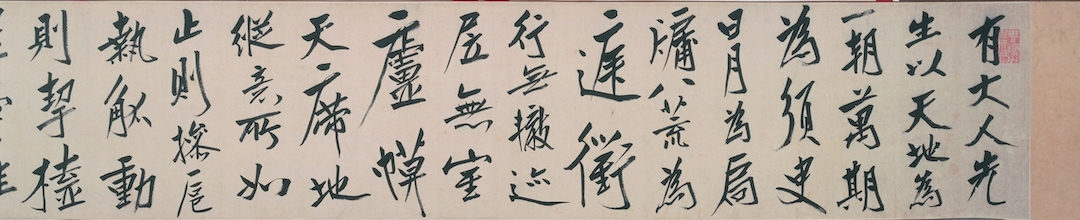 有大人先
生以天地為
一朝萬期
為須臾
日月為扃
牖八荒為
庭衢
行无轍迹
居無室
廬幙
天席地
縱意所如
止則操卮
執觚動
則挈榼